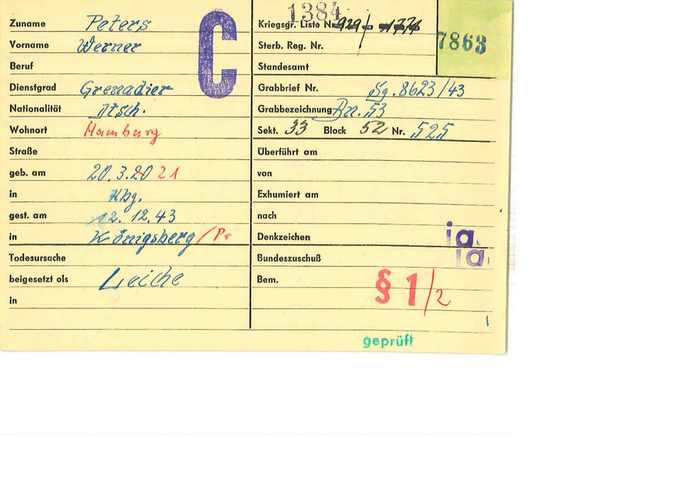 1384
Zuname Peters
Vorname Werner
Beruf
Dienstgrad Grenadier
Nationalität Dtsch.
Wohnort Hamburg
Straße
geb. am 20.3.20 21
in Hbg.
gest. am 12.12.43
in Königsberg / Pr
Todesursache
beigesetzt als Leiche
in
C
Kriegsgr. Liste Nr. 929
7863
Sterb. Reg. Nr.
Standesamt
Grabbrief Nr. 8623/43
Grabbezeichnung 53
Sekt. 33 Block 52 Nr. 525
Überführt am
von
Exhumiert am
nach
Denkzeichen ja.
Bundeszuschuß ja.
Bem. § 1/2
geprüft